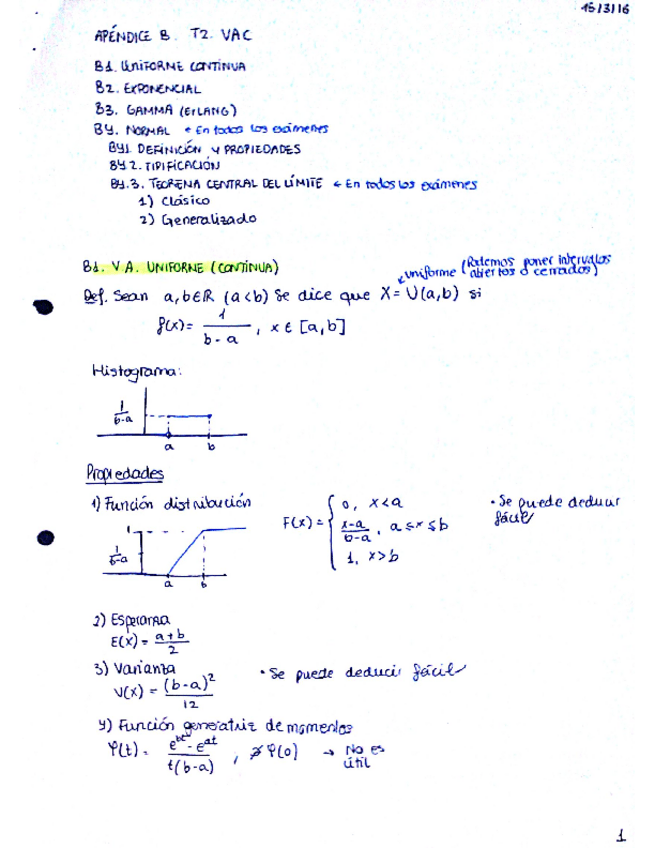 15/3/16
APÉNDICE B. T2. VAC
B1. UNIFORME CONTINUA
B2. EXPONENCIAL
B3. GAMMA (ErLANG)
B4. NORMAL ← En todos los exámenes
B41. DEFINICIÓN Y PROPIEDADES
B42. TIPIFICACIÓN
B4.3. TEOREMA CENTRAL DEL LÍMITE ← En todos los exámenes
1) Clásico
2) Generalizado
B1. V.A. UNIFORME (CONTÍNUA)
uniforme (Podemos poner intervalos abiertos o cerrados)
Def. Sean a, b ∈ R (a < b) Se dice que X = U(a,b) si
f(x) = 1/(b-a), x ∈ [a, b]
Histograma:
1/(b-a)
a b
Propiedades
1) Función distribución
F(x) = { 0, x < a
(x-a)/(b-a), a ≤ x ≤ b
1, x > b
• Se puede deducir fácil
1
1/(b-a)
a b
2) Esperanza
E(x) = (a+b)/2
3) Varianza • Se puede deducir fácil
V(x) = (b-a)²/12
4) Función generatriz de momentos
φ(t) = (e^{bt} - e^{at})/(t(b-a)), ∄ φ(0) → No es útil
1